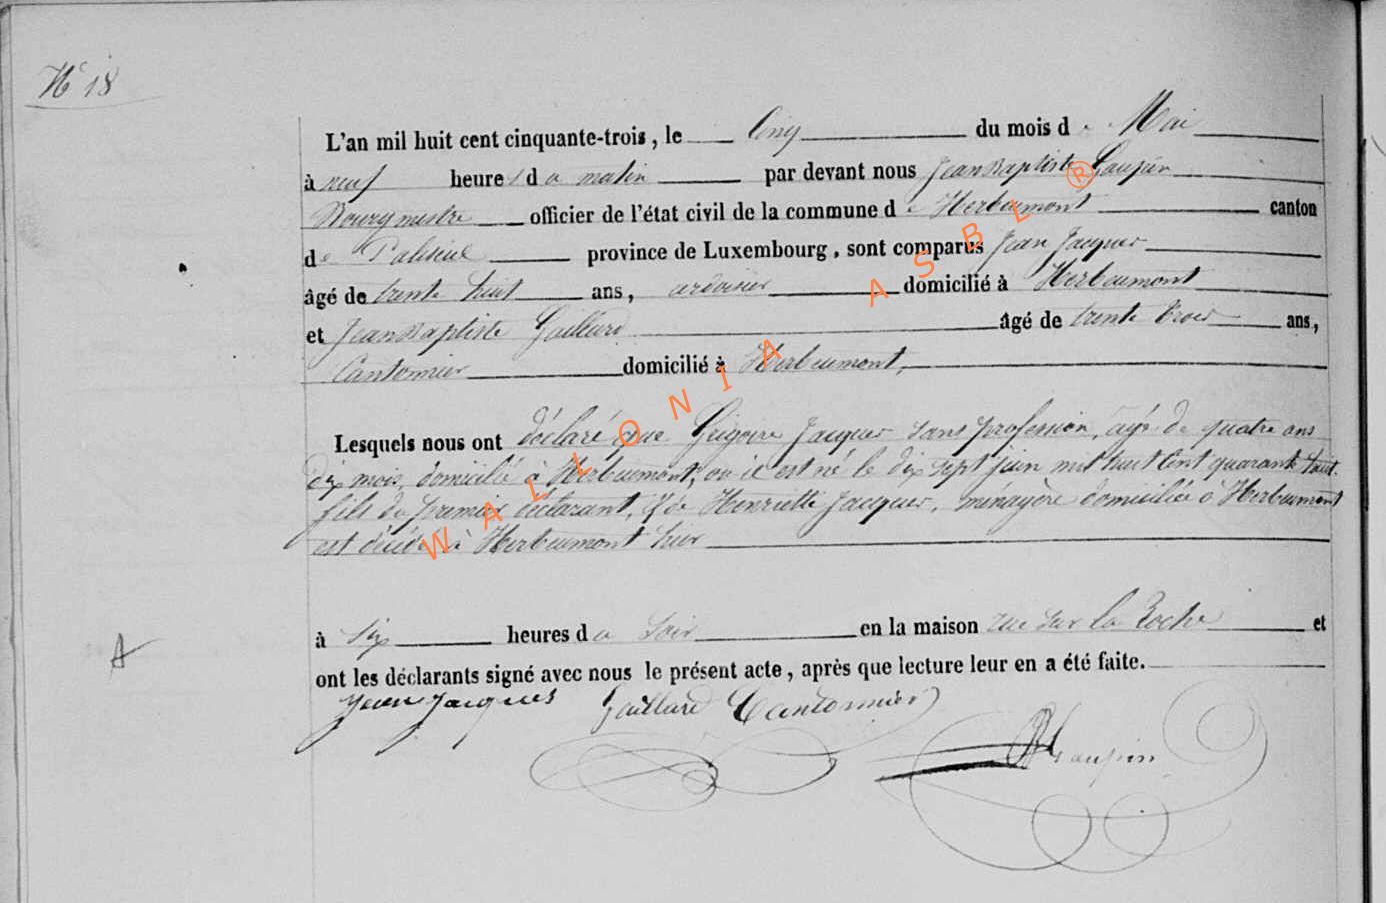 N° 18
L'an mil huit cent cinquante-trois, le Cinq du mois de Mai
à neuf heures du matin par devant nous Jean Baptiste
Bourgmestre officier de l'état civil de la commune de Herbeumont canton
de Paliseul province de Luxembourg, sont comparus Jean Jacques
âgé de trente huit ans, ardoisier domicilié à Herbeumont
et Jean Baptiste Gaillard âgé de trente trois ans,
Cantonnier domicilié à Herbeumont,
Lesquels nous ont déclaré que Grégoire Jacques sans profession, âgé de quatre ans
dix mois, domicilié à Herbeumont, où il est né le dix sept juin mil huit cent quarante huit
fils du premier déclarant, & de Henriette Jacques, ménagère domiciliée à Herbeumont
est décédé à Herbeumont hier
à six heures du soir en la maison rue sur la Roche et
ont les déclarants signé avec nous le présent acte, après que lecture leur en a été faite.
Jean Jacques Gaillard Cantonnier
A
WALLONIA ASBL ®